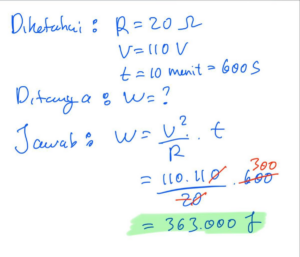 Diketahui : R = 20 Ω
V = 110 V
t = 10 menit = 600 S
Ditanya : W = ?
Jawab : W = V² / R . t
= 110.110 / 20 . 600 300
= 363.000 J